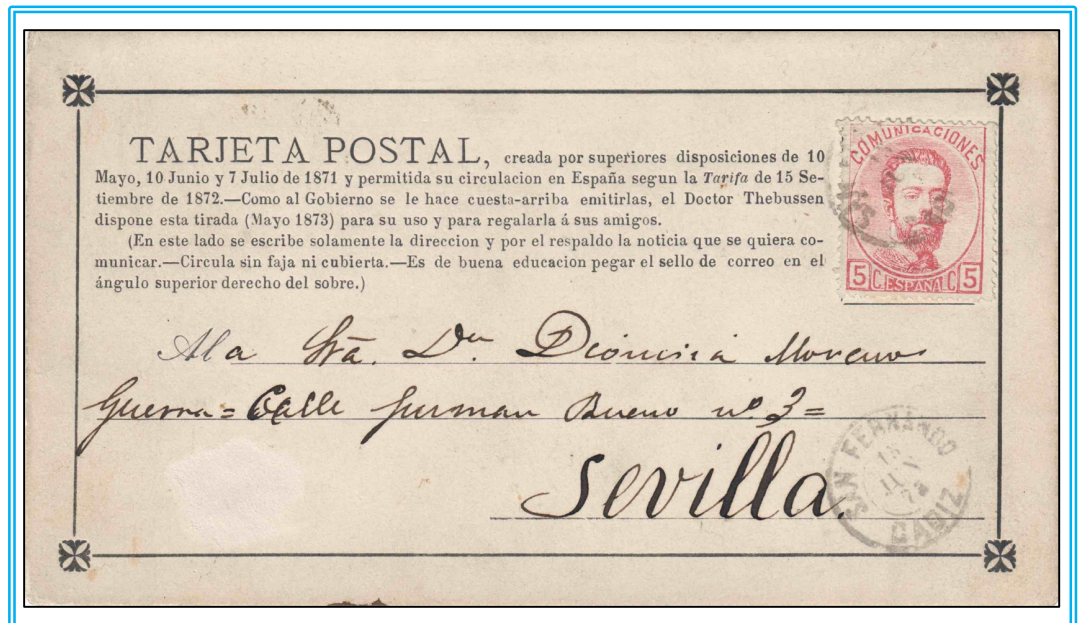 TARJETA POSTAL, creada por superiores disposiciones de 10
Mayo, 10 Junio y 7 Julio de 1871 y permitida su circulacion en España segun la Tarifa de 15 Se-
tiembre de 1872.—Como al Gobierno se le hace cuesta-arriba emitirlas, el Doctor Thebussen
dispone esta tirada (Mayo 1873) para su uso y para regalarla á sus amigos.
(En este lado se escribe solamente la direccion y por el respaldo la noticia que se quiera co-
municar.—Circula sin faja ni cubierta.—Es de buena educacion pegar el sello de correo en el
ángulo superior derecho del sobre.)
COMUNICACIONES
5 C. ESPAÑA C 5
A la Srta. Dª Dionisia Moreno
Guerra = Calle Guzman Bueno nº 3 =
Sevilla.
SAN FERNANDO
CADIZ